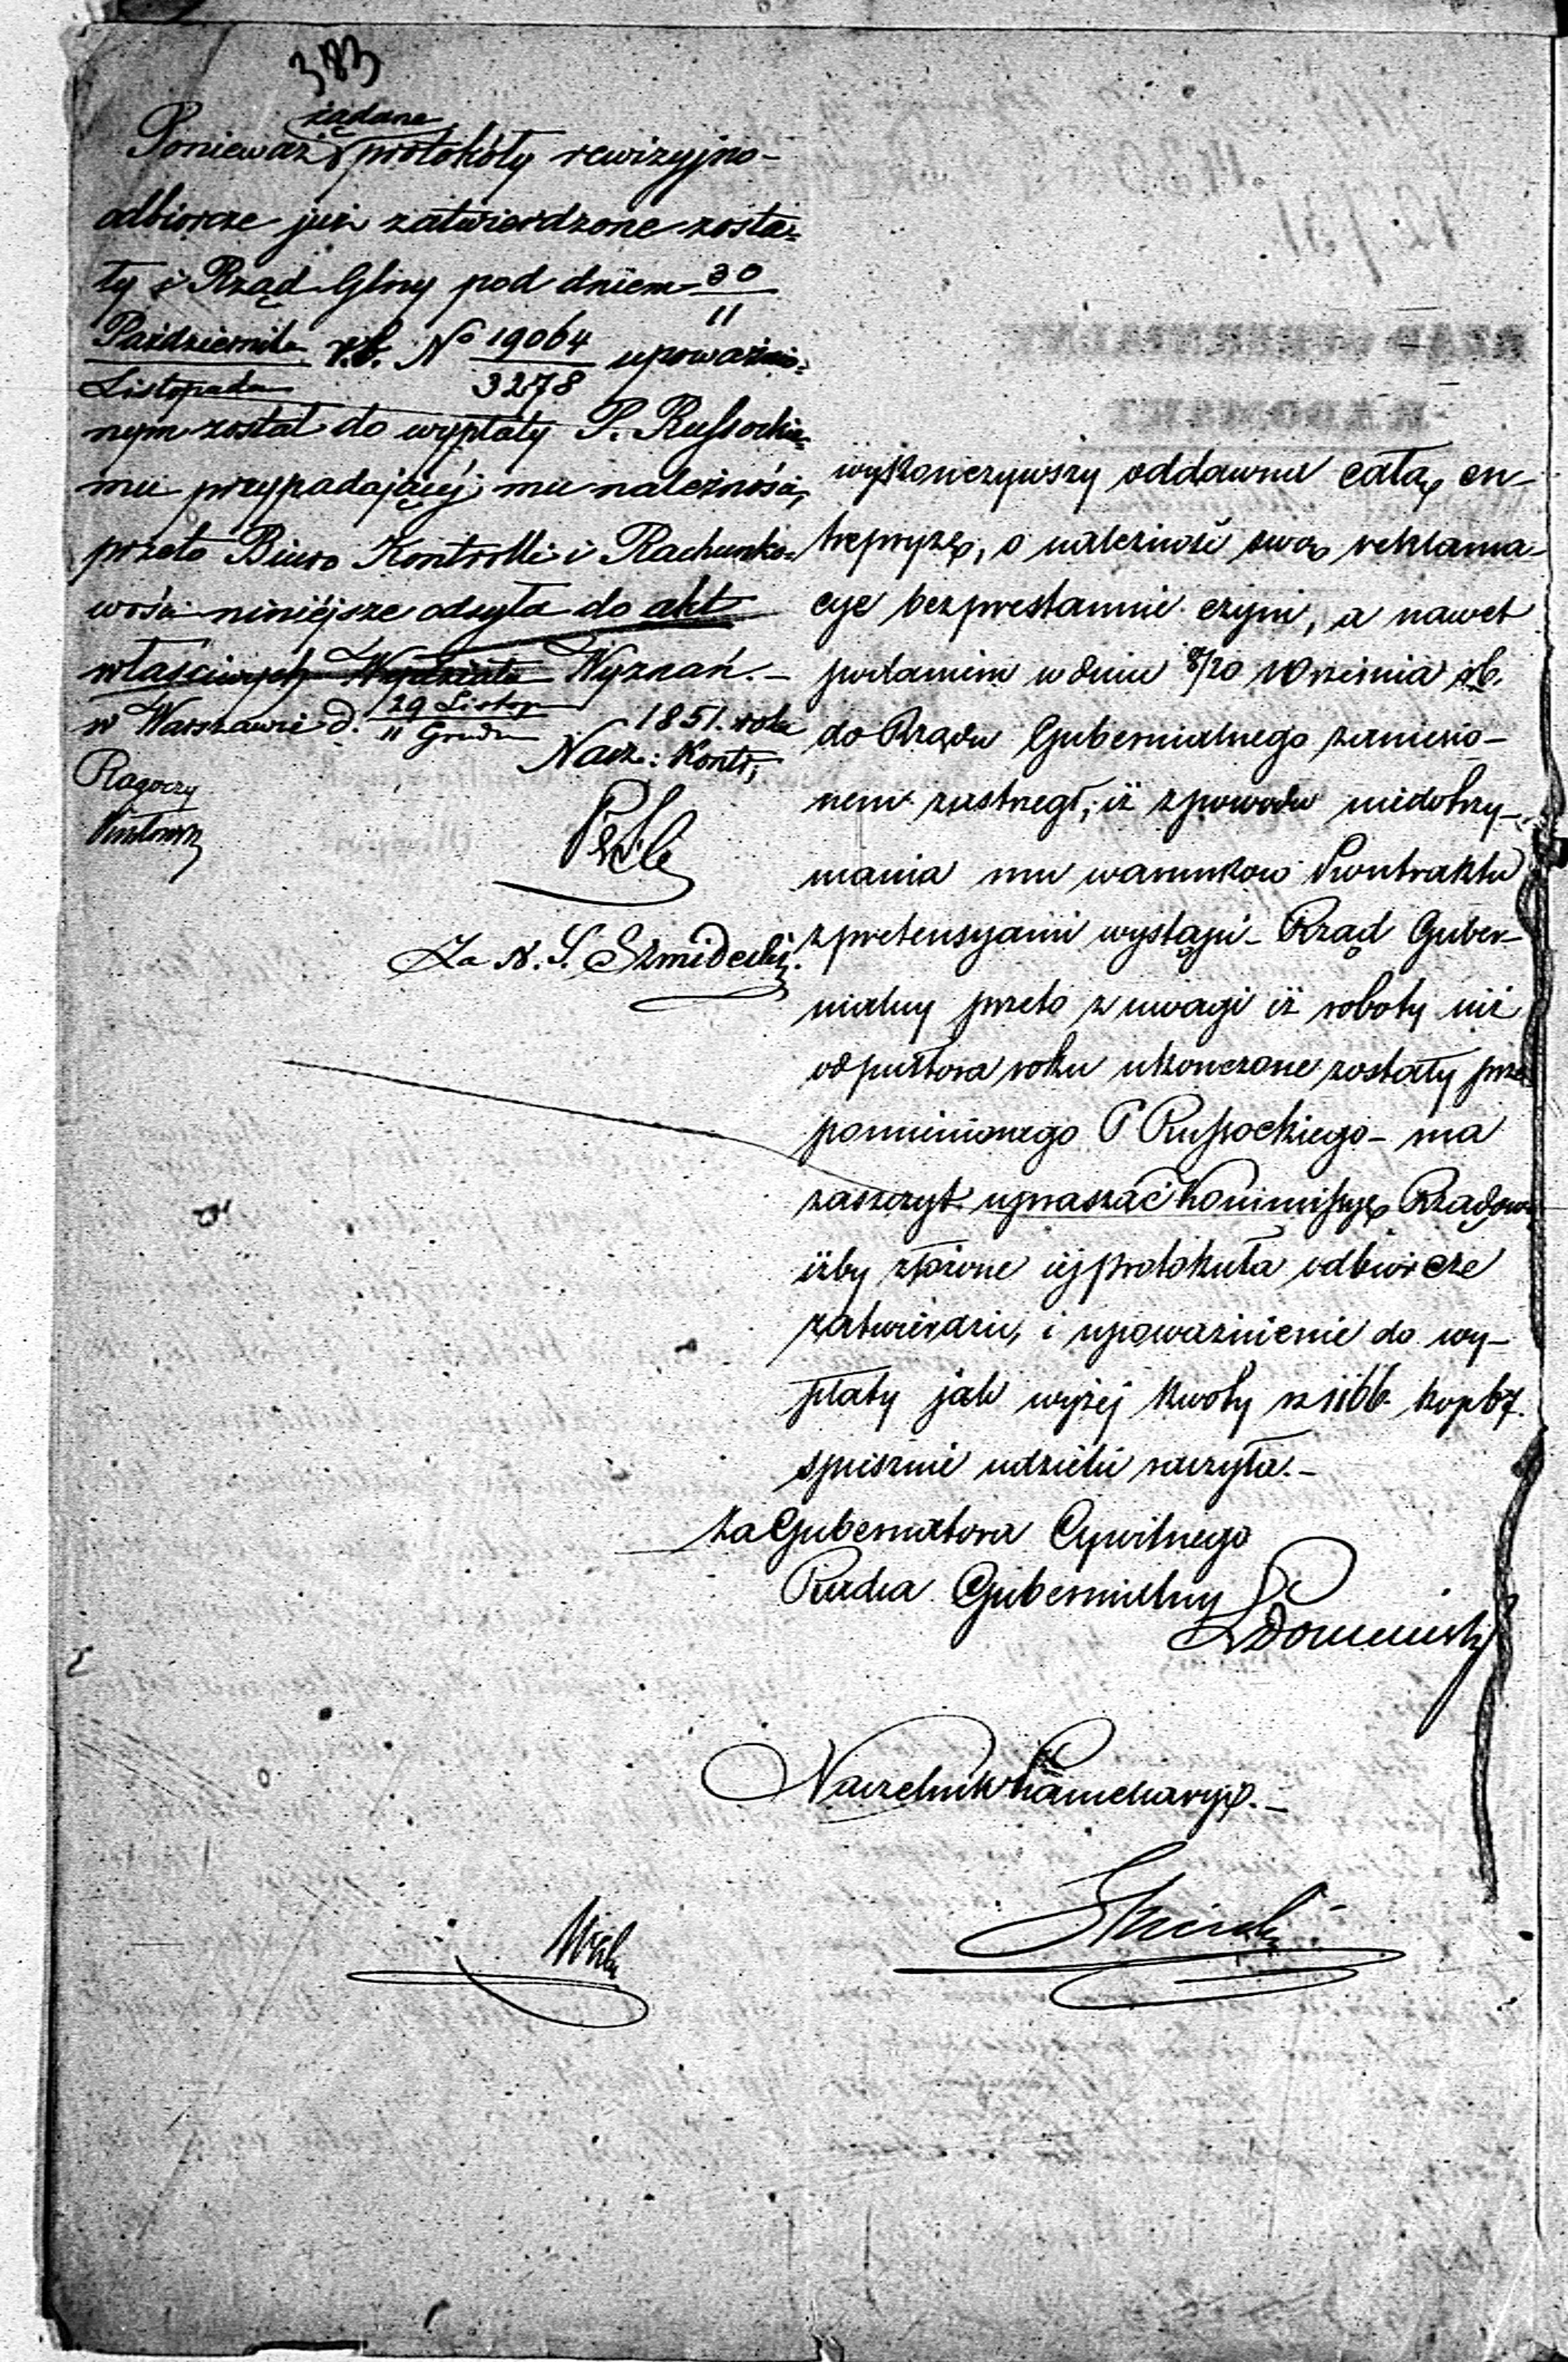 383
żądane
Ponieważ protokóły rewizyjno-
odbiorcze już zatwierdzone zosta=
ły i Rząd Glny pod dniem 30
11
Października r.b. N° 19064 upoważnio=
Listopada 3278
nym został do wypłaty P. Russockie=
mu przypadającéj mu należności,
przeto Biuro Kontrolli i Rachunko=
wości niniéjsze odsyła do akt
właściwych Wydziału Wyznań. -
w Warszawie d. 29 Listop 1851. roku
11 Grudn
Nacz: Kontr;
Ragoczy
Za N. S. Szmidecki
wykonczywszy oddawna całą en-
trepryzę, o należność swą reklama-
cye bezprestannie czyni, a nawet
podaniem w dniu 8/20 Wrzesnia rb.
do Rządu Gubernialnego zaniesio-
nem zastrzegł, iż z powodu niedotrzy-
mania mu warunkow Kontraktu
z pretensyami wystąpi - Rząd Guber-
nialny przeto z uwagi iż roboty niż
od pułtora roku ukonczone zostały prze
pomienionego P Russockiego - ma
zaszczyt upraszać Kommissyę Rządową
iżby złożone jej protokuła odbiorcze
zatwierdzić, i upoważnienie do wy-
płaty jak wyżej kwoty rs 1166 kop 67.
spiesznie udzielić raczyła. -
za Gubernatora Cywilnego
Radca Gubernialny
Naczelnik Kancellaryi. -